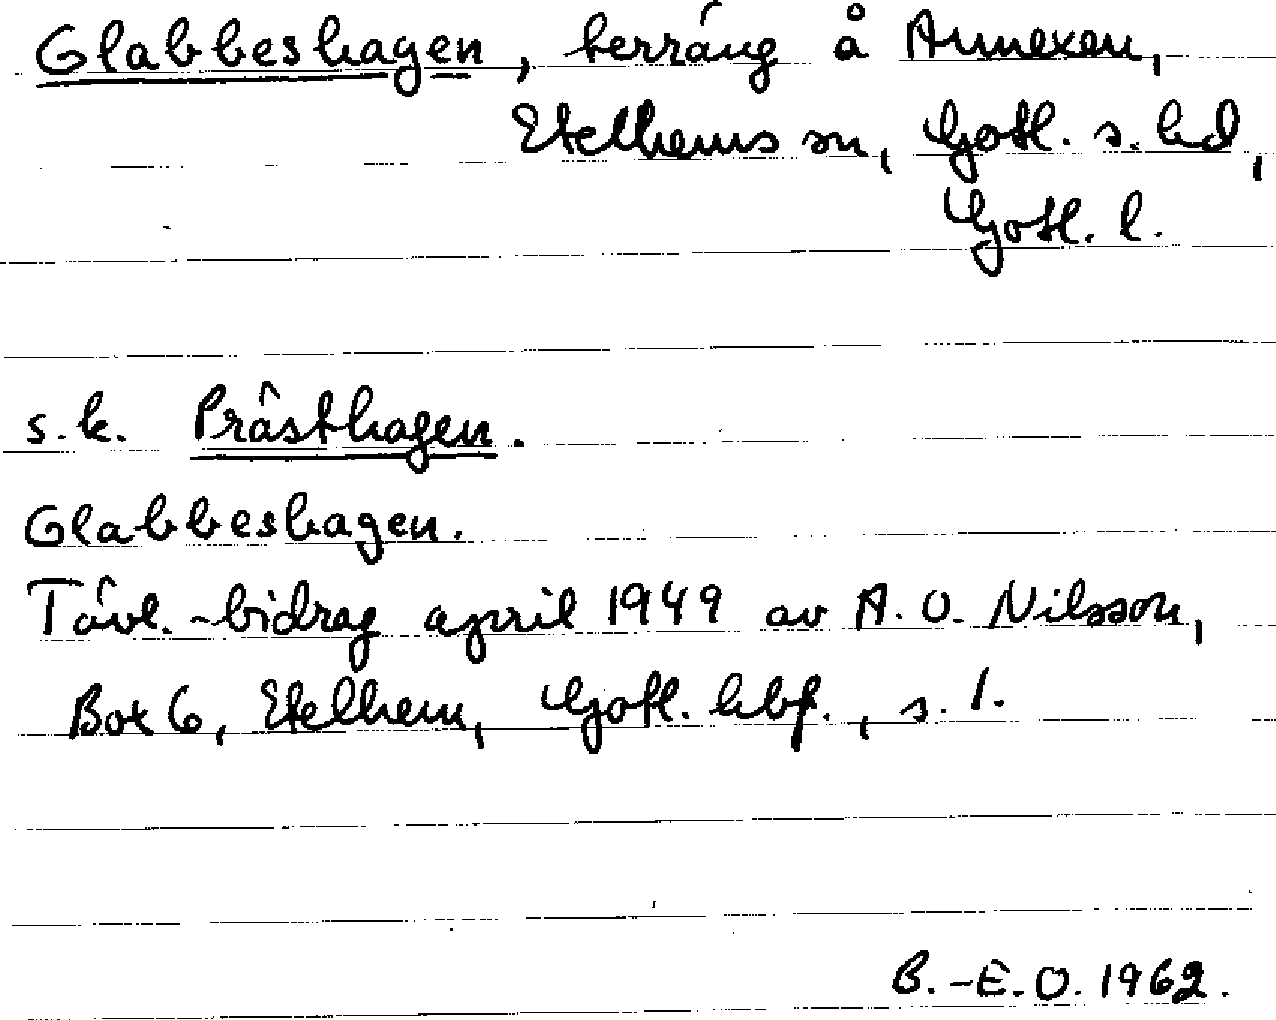 Glabbeshagen, terräng å Annexen,
Etelhems sn, Gotl. s. hd,
Gotl. l.
s.k. Prästhagen.
Glabbeshagen.
Tävl.-bidrag april 1949 av A. O. Nilsson,
Box 6, Etelhem, Gotl. hbf., s. 1.
B.-E.O. 1962.